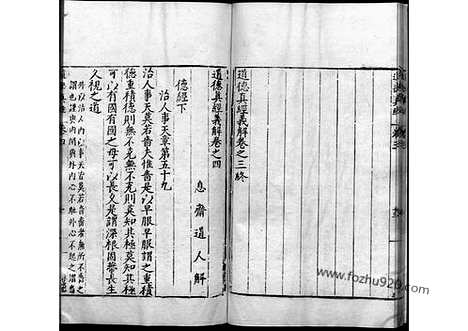 道德真經義解卷之三終
道德真經義解卷之四
息齋道人解
德經下
治人事天章第五十九
治人事天莫若嗇夫惟嗇是以早服早服謂之重積
德重積德則無不克無不克則莫知其極莫知其極
可以有國有國之母可以長久是謂深根固蒂長生
久視之道
外以治人內以事天莫若嗇嗇者無所不嗇之
www.fozhu920.com